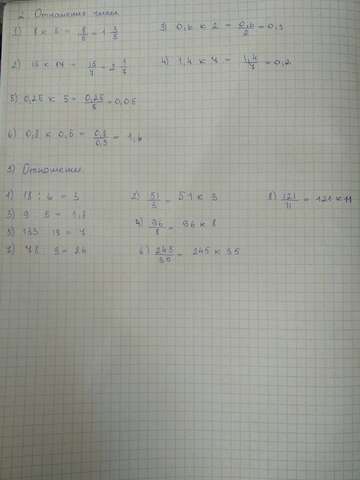 2. Отношение чисел
1) 8 к 5 = 8/5 = 1 3/5
3) 0,6 к 2 = 0,6/2 = 0,3
2) 15 к 7 = 15/7 = 2 1/7
4) 1,4 к 7 = 1,4/7 = 0,2
5) 0,25 к 5 = 0,25/5 = 0,05
6) 0,8 к 0,5 = 0,8/0,5 = 1,6
3) Отношение.
1) 18 : 6 = 3
2) 51/3 = 51 к 3
8) 121/11 = 121 к 11
3) 9 5 = 1,8
4) 96/8 = 96 к 8
5) 133 19 = 7
6) 245/35 = 245 к 35
7) 78 : 3 = 26